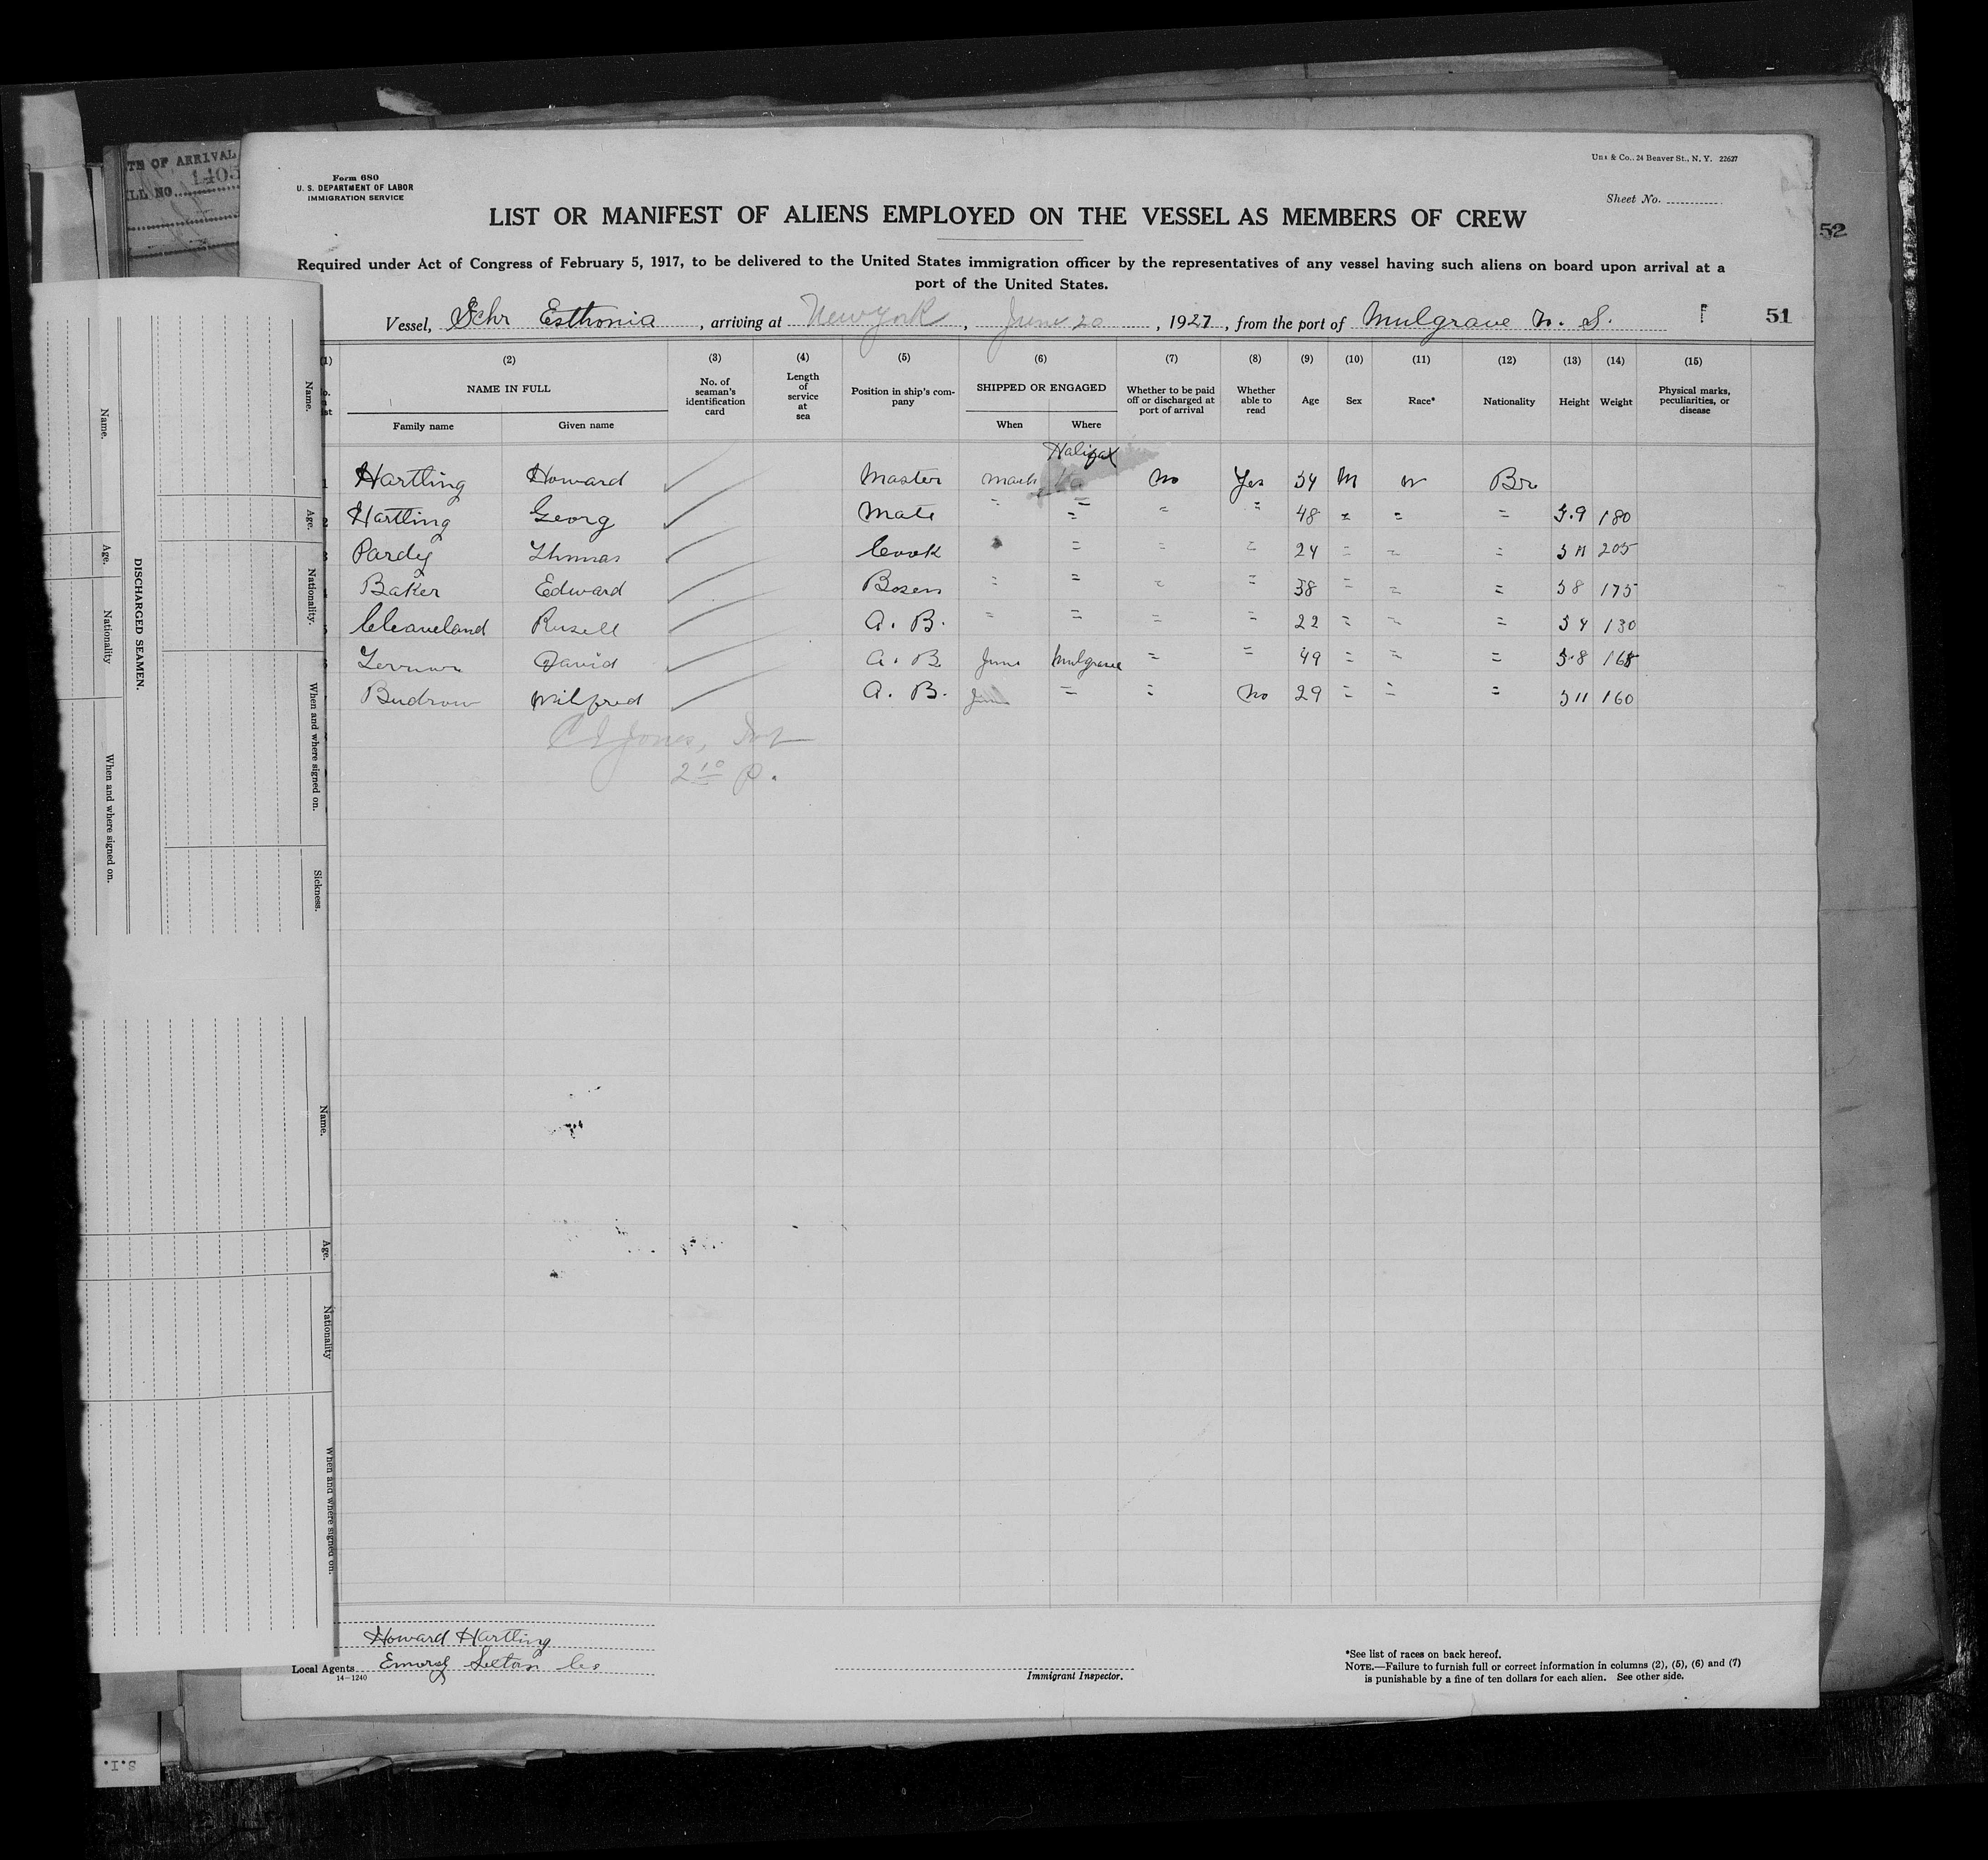 TE OF ARRIVAL
LL NO. 1405
Form 680
U. S. DEPARTMENT OF LABOR
IMMIGRATION SERVICE
& Co., 24 Beaver St., N. Y. 22627
Sheet No.
LIST OR MANIFEST OF ALIENS EMPLOYED ON THE VESSEL AS MEMBERS OF CREW
52
Required under Act of Congress of February 5, 1917, to be delivered to the United States immigration officer by the representatives of any vessel having such aliens on board upon arrival at a
port of the United States.
Vessel, Schr Esthonia, arriving at New York, June 20, 1927, from the port of Mulgrave N. S. 51
(1) (2) (3) (4) (5) (6) (7) (8) (9) (10) (11) (12) (13) (14) (15)
NAME IN FULL
Family name Given name
No. of seaman's identification card
Length of service at sea
Position in ship's com-pany
SHIPPED OR ENGAGED
When Where
Whether to be paid off or discharged at port of arrival
Whether able to read
Age Sex Race* Nationality Height Weight
Physical marks, peculiarities, or disease
Halifax
Hartling Howard Master March No Yes 54 M W Br
Hartling Georg Mate " = = = 48 = = = 5.9 180
Pardy Thomas Cook = = = 24 = = = 5 11 205
Baker Edward Bosen = = = = 38 = = = 5 8 175
Cleaveland Rusell A. B. = = = = 22 = = = 5 4 130
David A. B. June Mulgrave = = 49 = = = 5.8 168
Budrow Wilfred A. B. June = = No 29 = = = 5 11 160
Jones,
2 10 P.
Howard Hartling
Local Agents Emory Sexton Co
14-1240
Immigrant Inspector.
*See list of races on back hereof.
NOTE.—Failure to furnish full or correct information in columns (2), (5), (6) and (7)
is punishable by a fine of ten dollars for each alien. See other side.
DISCHARGED SEAMEN.
Name.
Age.
Nationality
When and where signed on.
Name.
Age.
Nationality.
When and where signed on.
Sickness.
Name.
Age.
Nationality
When and where signed on.
S.I.